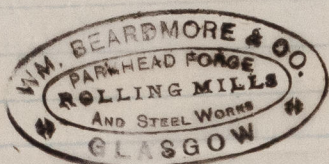 WM. BEARDMORE & CO.
PARKHEAD FORGE
ROLLING MILLS
AND STEEL WORKS
GLASGOW